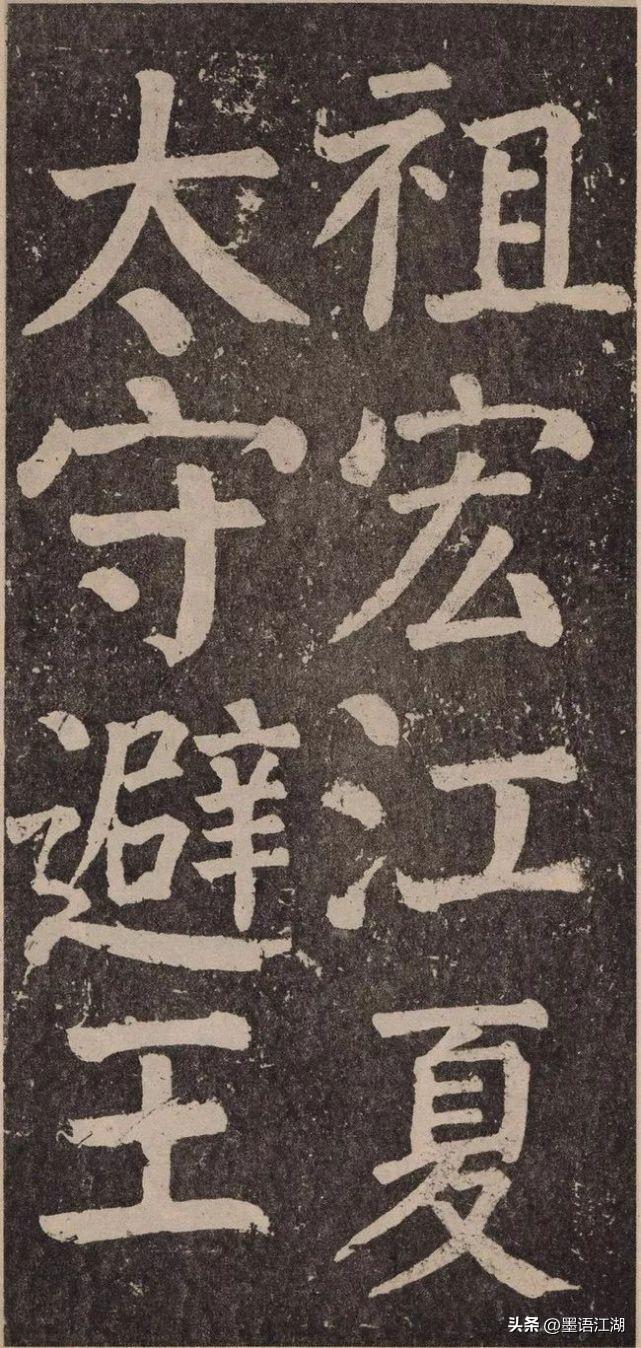 祖宏江夏
太守避王
头条 @墨语江湖